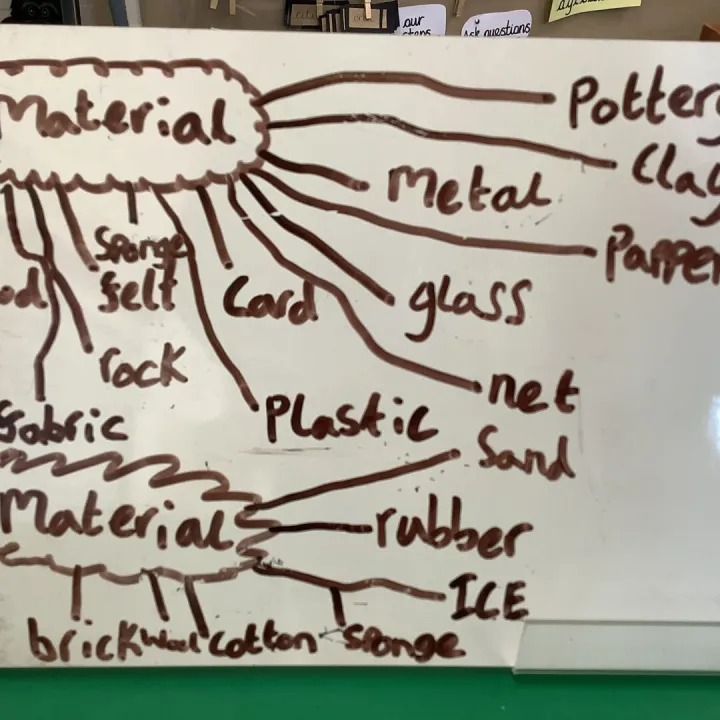 our
steps
Ask questions
Material
Pottery
Clay
Metal
Papper
Sponge
felt
Card
glass
rock
net
fabric
Plastic
Sand
Material
rubber
ICE
brick wool cotton sponge